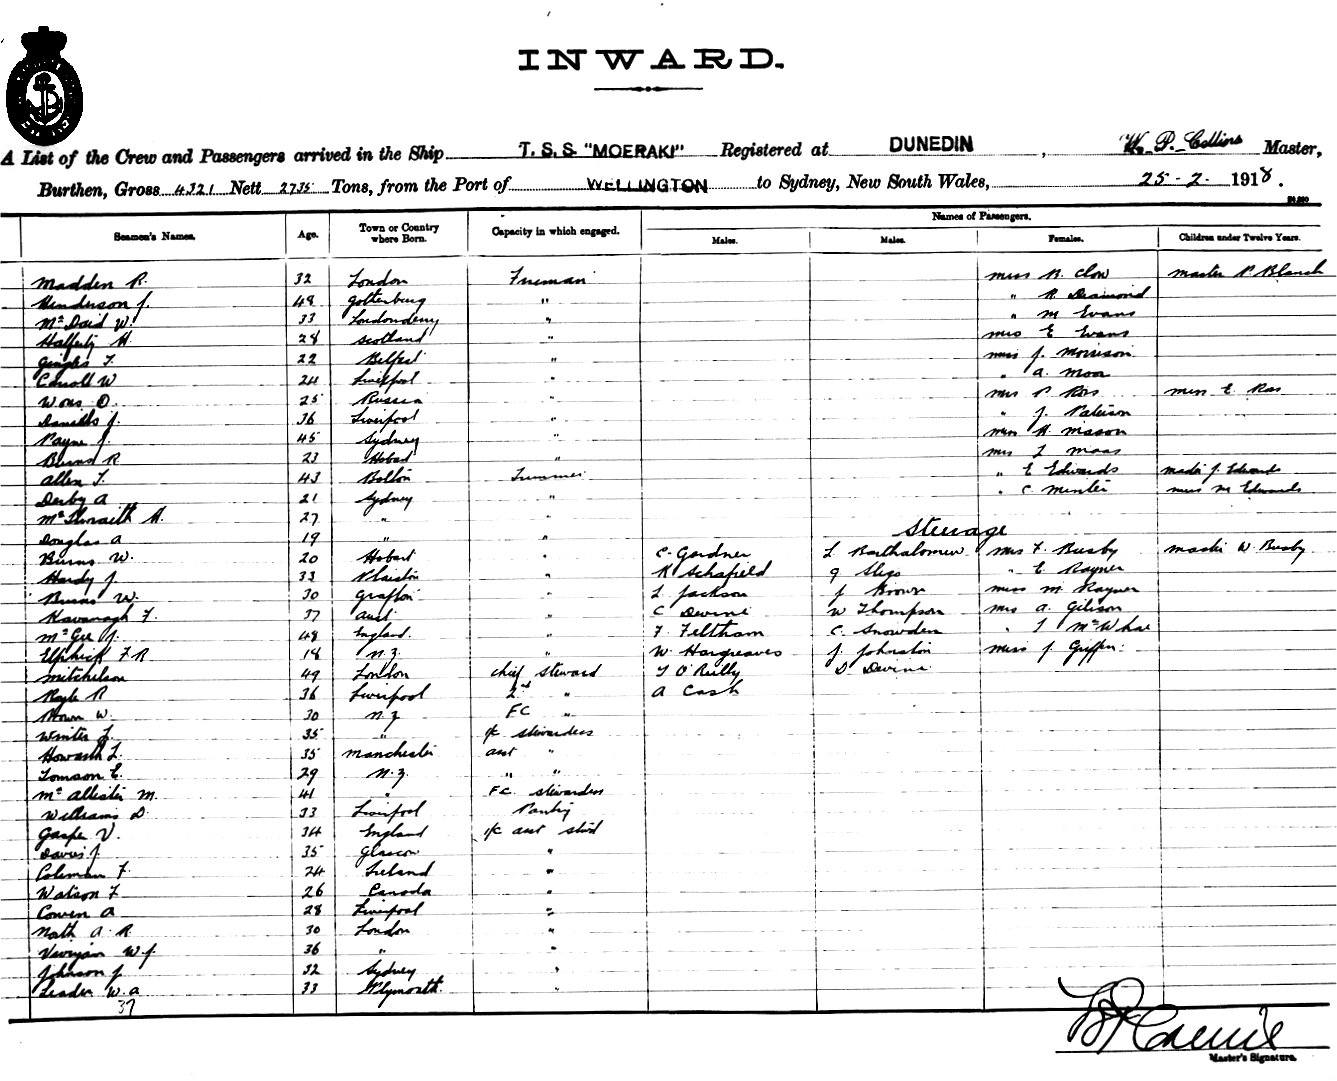 INWARD.
A List of the Crew and Passengers arrived in the Ship T.S.S. "MOERAKI" Registered at DUNEDIN, W. P. Collins Master,
Burthen, Gross 4321 Nett 2735 Tons, from the Port of WELLINGTON to Sydney, New South Wales, 25-2- 1918.
Names of Passengers.
Seamen's Names. Age. Town or Country where Born. Capacity in which engaged. Males. Males. Females. Children under Twelve Years.
Madden R. 32 London Fireman miss B. Clow master P Blanch
Henderson J. 48 Gottenburg " " R Diamond
McDaid W. 33 Londonderry " " M Evans
H. 28 Scotland " mrs E Evans
T. 22 Belfast " miss J. Morrison
Carroll W 24 Liverpool " " A. Moor
O. 25 Russia " mrs P Ross miss E Ross
Daniells J. 36 Liverpool " " J. Paterson
Payne J. 45 Sydney " miss H. Mason
Burns R 23 Hobart " mrs L Moss
Allen T. 43 Bolton Trimmer " E Edwards master J. Edwards
Derby A 21 Sydney " " C Minter miss M Edwards
H. 27 " "
Steerage
Douglas A 19 " "
Burns W. 20 Hobart " C. Gardner L Bartholomew mrs F. Busby master W Busby
Hardy J. 33 Plaistow " R Schofield " E Rayner
Burns W. 30 Grafton " L Jackson J Brown miss M Rayner
Kavanagh F. 37 Aust " C Devine W Thompson mrs A. Gibson
McGee J. 48 England. " F Feltham C. Snowden "
Elphick F R 18 N.Z. " W Hargreaves J. Johnston miss J Griffin.
Mitchelson 49 London chief steward T O'Reilly D Devine
R 36 Liverpool 2nd " A Cash
Brown W. 30 N.Z FC "
Winter L. 35 " stewardess
Howarth L. 35 Manchester asst "
Tomson E. 29 N.Z. " "
McAllister M. 41 " F.C. stewardess
Williams D. 33 Liverpool Pantry
V. 34 England asst stwd
Davis J. 35 Glascow "
Coleman F. 24 Ireland "
Watson F 26 Canada "
Cowen A 28 Liverpool "
North A. R. 30 London "
W J. 36 " "
Johnson J 32 Sydney "
Leader W. A 33 Plymouth. "
37
Master's Signature.